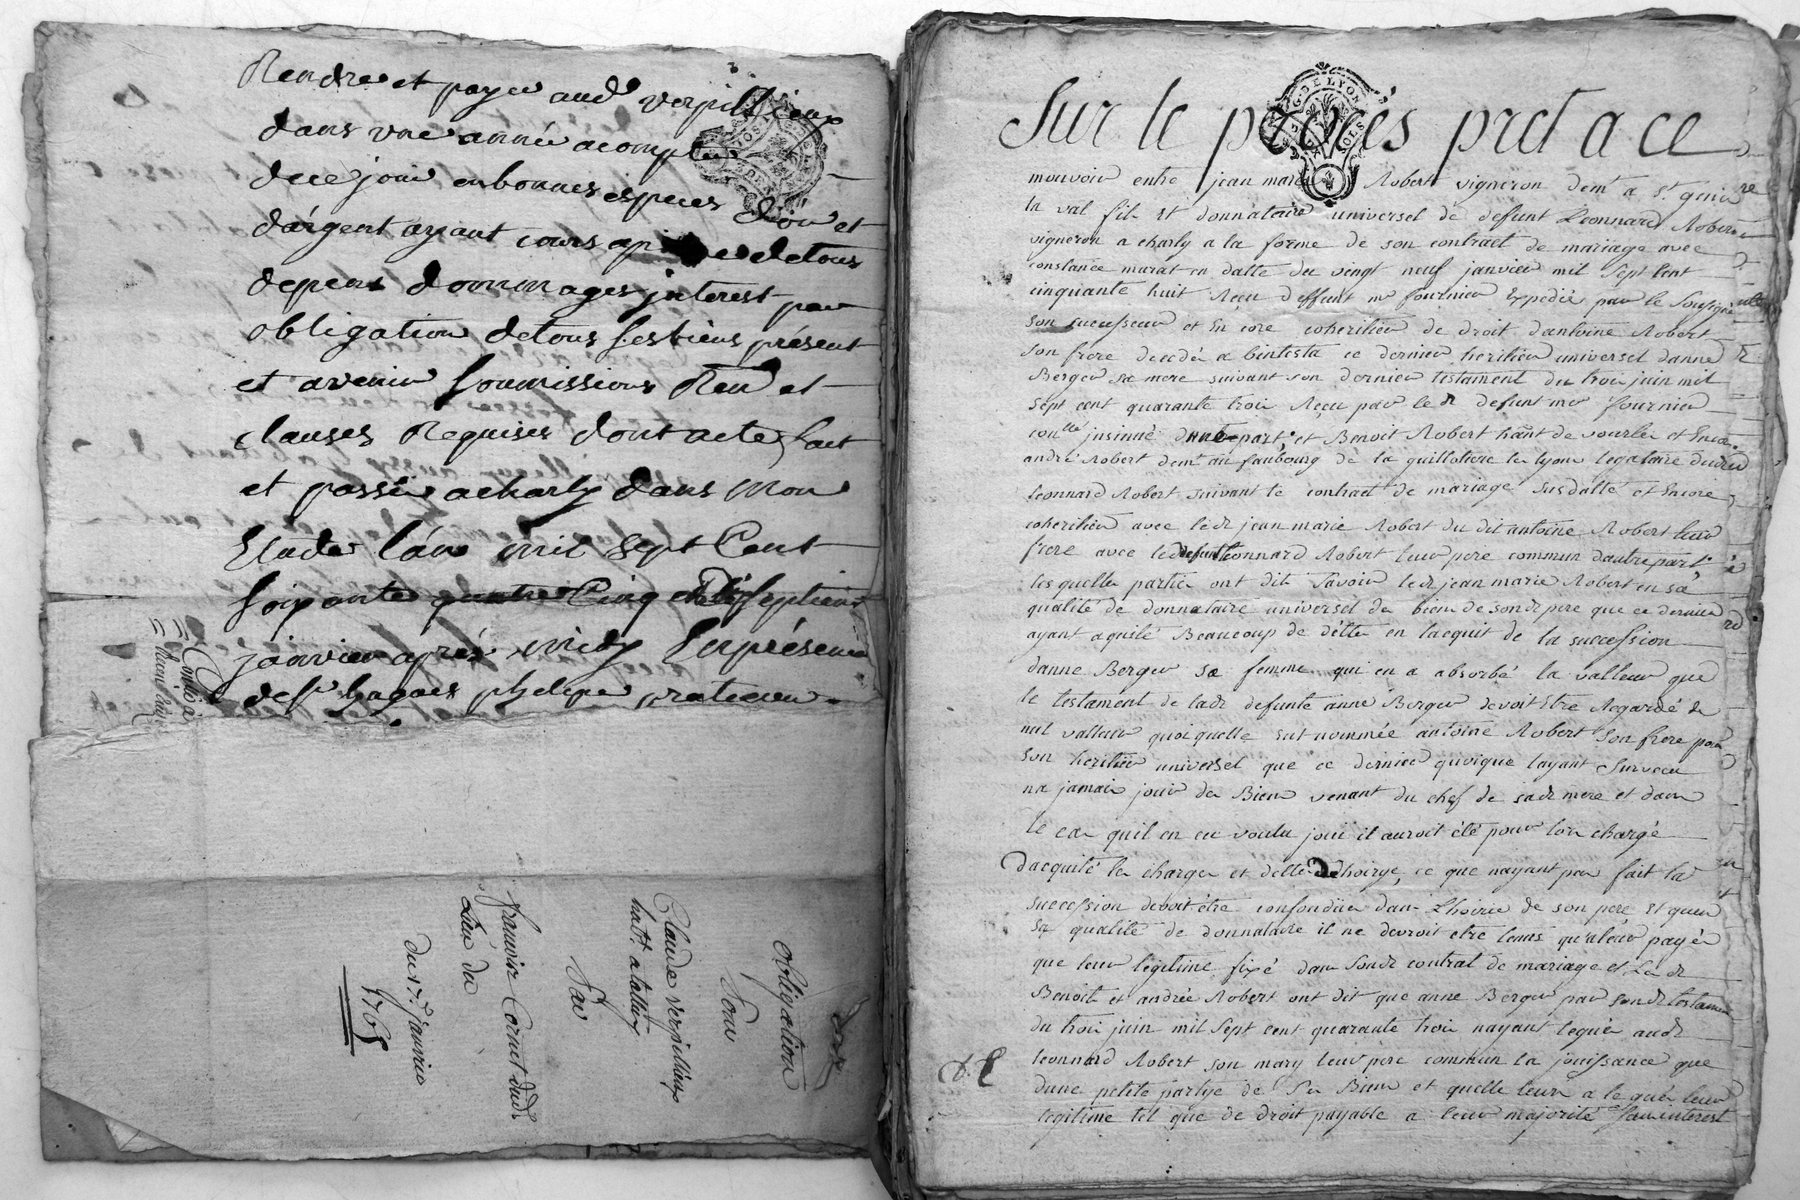 Rendre et payer aud verpillieux
dans une année a compter
de ce jour en bonnes especes d'or et
d'argent ayant cours a peine de tous
depens dommages interest par
obligation de tous ses biens présent
et avenir soumissions Ren et
clauses Requises dont acte fait
et passé a charly dans mon
Etude l'an mil sept Cent
soixante quatre Cinq dixseptieme
janvier après midy En présence
de sr phelipe praticien
Obligation
Pour
Claude verpillieux
habt a talluy
Par
francoise Cornet dudt
Lieu du
du 17e Janvier
1765
G. DE LYON
Sur le procés pret a ce
mouvoir entre jean marie Robert vigneron demt a st genis
la val fils et donnataire universel de defunt Leonnard Robert
vigneron a charly a la forme de son contract de mariage avec
constance marat en datte du vingt neuf janvier mil sept cent
cinquante huit Reçu deffunt me fournier Expediée par le soussigné
son successeur et En core coheritier de droit d'antoine Robert
son frere decedé a bintesta ce dernier heritier universel danne
Berger sa mere suivant son dernier testament du trois juin mil
sept cent quarante trois Reçu par le dt defunt me fournier
conlle insinué d'une part, et Benoit Robert hant de vourles et Encor
andré Robert demt au faubourg de la guillotiere de Lyon legataire dudt
Leonnard Robert suivant le contract de mariage susdatté et Encore
coheritier avec ledt jean marie Robert du dit antoine Robert leur
frere avec le defunt Leonnard Robert leur pere commun d'autre part
lesquelles parties ont dit Savoir ledt jean marie Robert en sa
qualité de donnataire universel des biens de sondt pere que ce dernier
ayant aquité Beaucoup de déttes en lacquit de la succession
danne Berger sa femme qui en a absorbé la valleur que
le testament de ladt defunte anne Berger devoit Etre Regardé de
nul valleur quoi quelle eut nommée antoine Robert Son frere pour
son heritier universel que ce dernier quoique layant Survecu
na jamais jouir des Biens venant du chef de sadt mere et dans
le cas quil en eu voulu jouir il auroit été pour lors chargé
dacquité les charges et dettes dhoirye, ce que nayant pas fait la
succession devoit être confondüe dans Lhoirie de son pere et quen
sa qualité de donnataire il ne devroit etre tenus qu'a leur payer
que leur legitime fixé dans sondt contrat de mariage et Les dt
Benoit et andrée Robert ont dit que anne Berger par sondt testament
du trois juin mil sept cent quarante trois nayant leguée audt
leonnard Robert son mary leur pere commun la jouissance que
dune petite partye de Ses Biens et quelle leurs a leguée leur
legitime tel que de droit payable a leur majorité sans interest